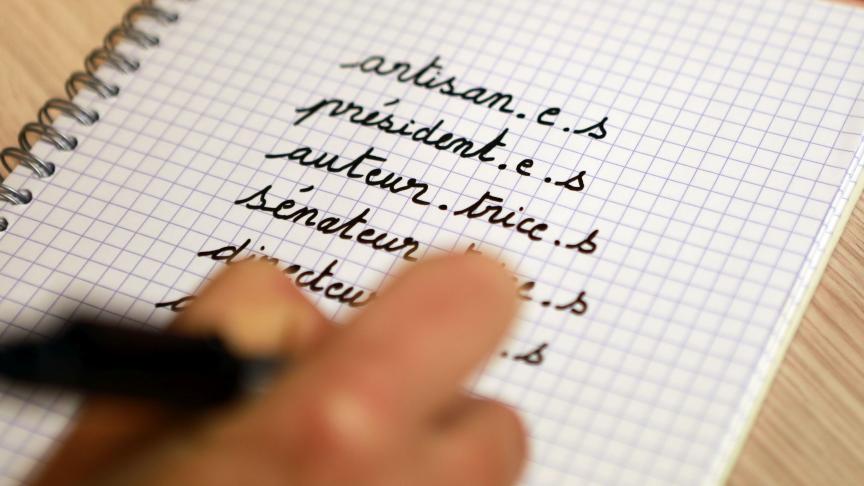 artisan.e.s
président.e.s
auteur.trice.s
sénateur.trice.s
directeur .s